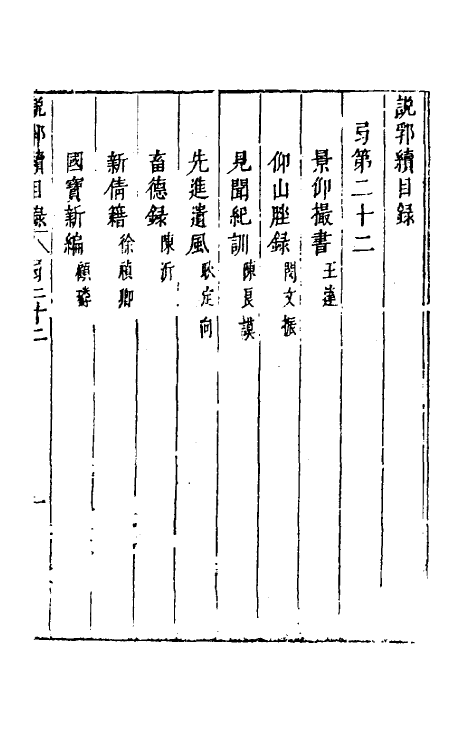 説郛續目錄
弓第二十二
景仰撮書 王達
仰山脞錄 閔文振
見聞紀訓 陳良謨
先進遺風 耿定向
畜德錄 陳沂
新倩籍 徐禎卿
國寶新編 顧璘
説郛續目錄 弓二十二 一